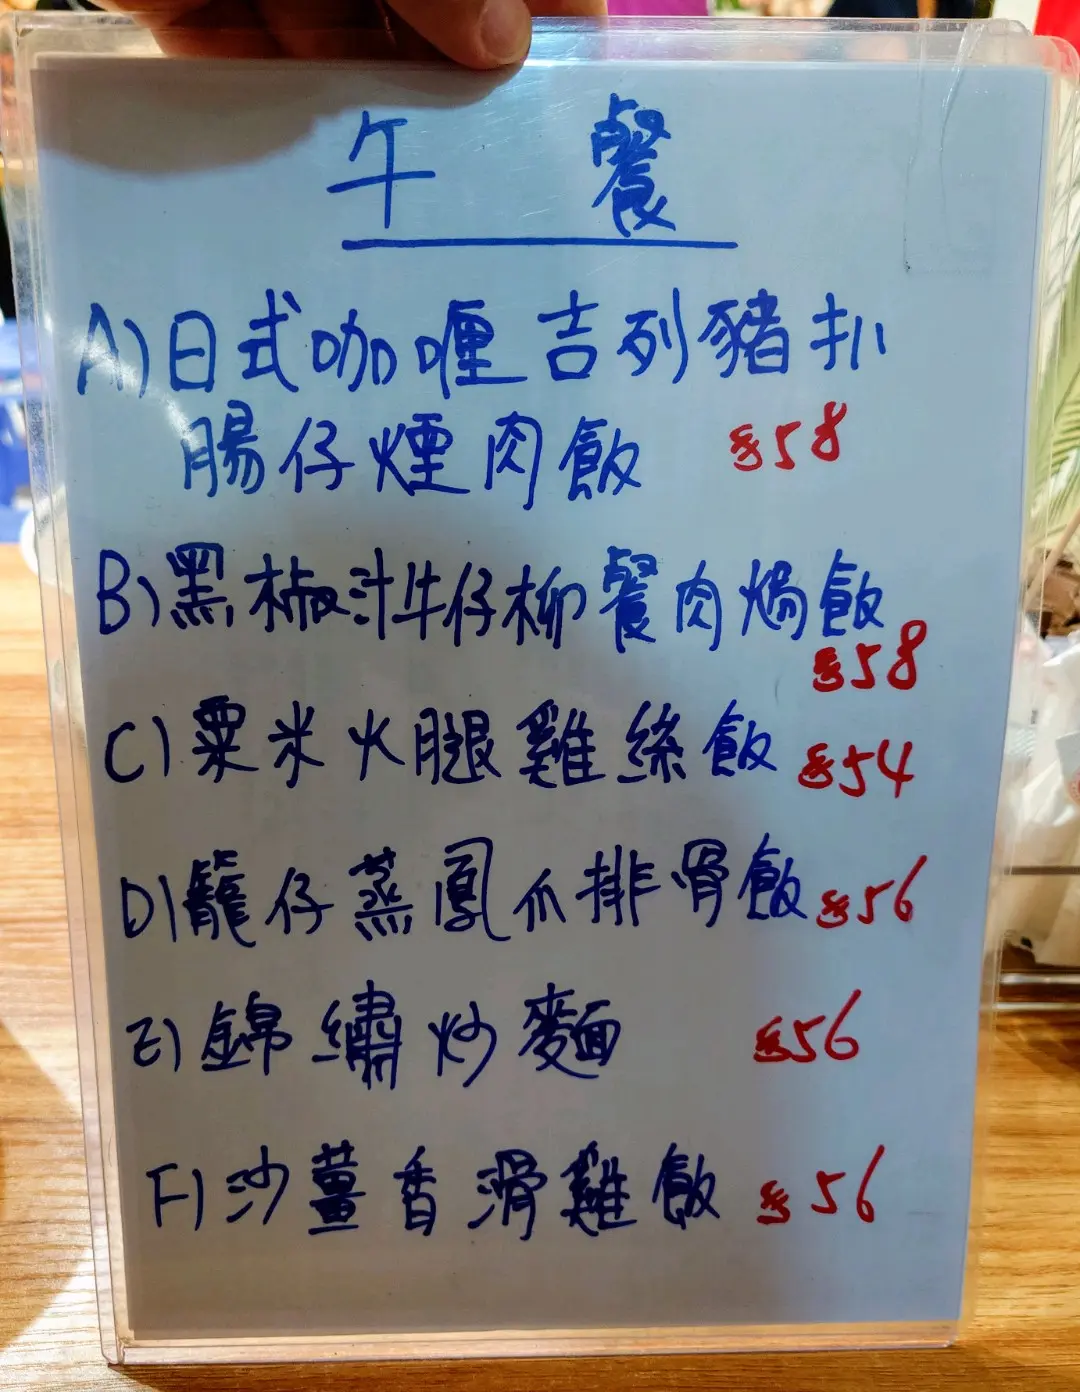 午餐
A)日式咖喱吉列豬扒
腸仔煙肉飯 $58
B)黑椒汁牛仔柳餐肉焗飯
$58
C)粟米火腿雞絲飯 $54
D)籠仔蒸鳳爪排骨飯 $56
E)錦繡炒麵 $56
F)沙薑香滑雞飯 $56